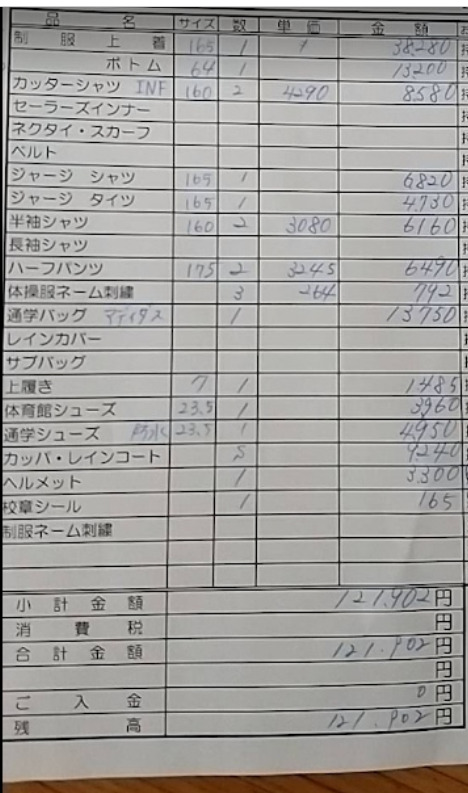 品 名 サイズ 数 単価 金額
制服上着 165 1 38280
ボトム 64 1 13200
カッターシャツ INF 160 2 4290 8580
セーラーズインナー
ネクタイ・スカーフ
ベルト
ジャージ シャツ 165 1 6820
ジャージ タイツ 165 1 4730
半袖シャツ 160 2 3080 6160
長袖シャツ
ハーフパンツ 175 2 3245 6490
体操服ネーム刺繍 3 264 792
通学バッグ アディダス 1 13750
レインカバー
サブバッグ
上履き 7 1 1485
体育館シューズ 23.5 1 3960
通学シューズ 防水 23.5 1 4950
カッパ・レインコート S 9240
ヘルメット 1 3300
校章シール 1 165
制服ネーム刺繍
小計金額 121.902円
消費税 円
合計金額 121.902円
円
ご入金 0円
残高 121.902円